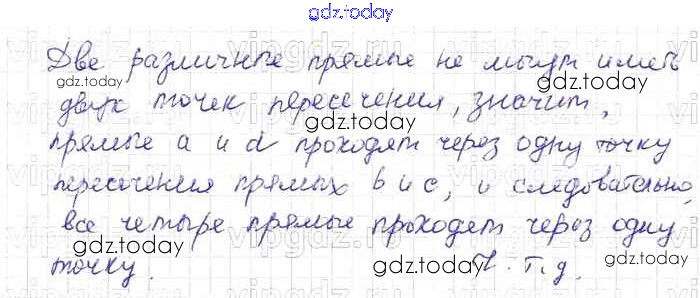 gdz.today
Две различные прямые не могут иметь
gdz.today
gdz.today
двух точек пересечения, значит,
gdz.today
прямые a и d проходят через одну точку
gdz.today
gdz.today
пересечения прямых b и c, и следовательно,
все четыре прямые проходят через одну
gdz.today
точку.
gdz.today
Ч.Т.Д.